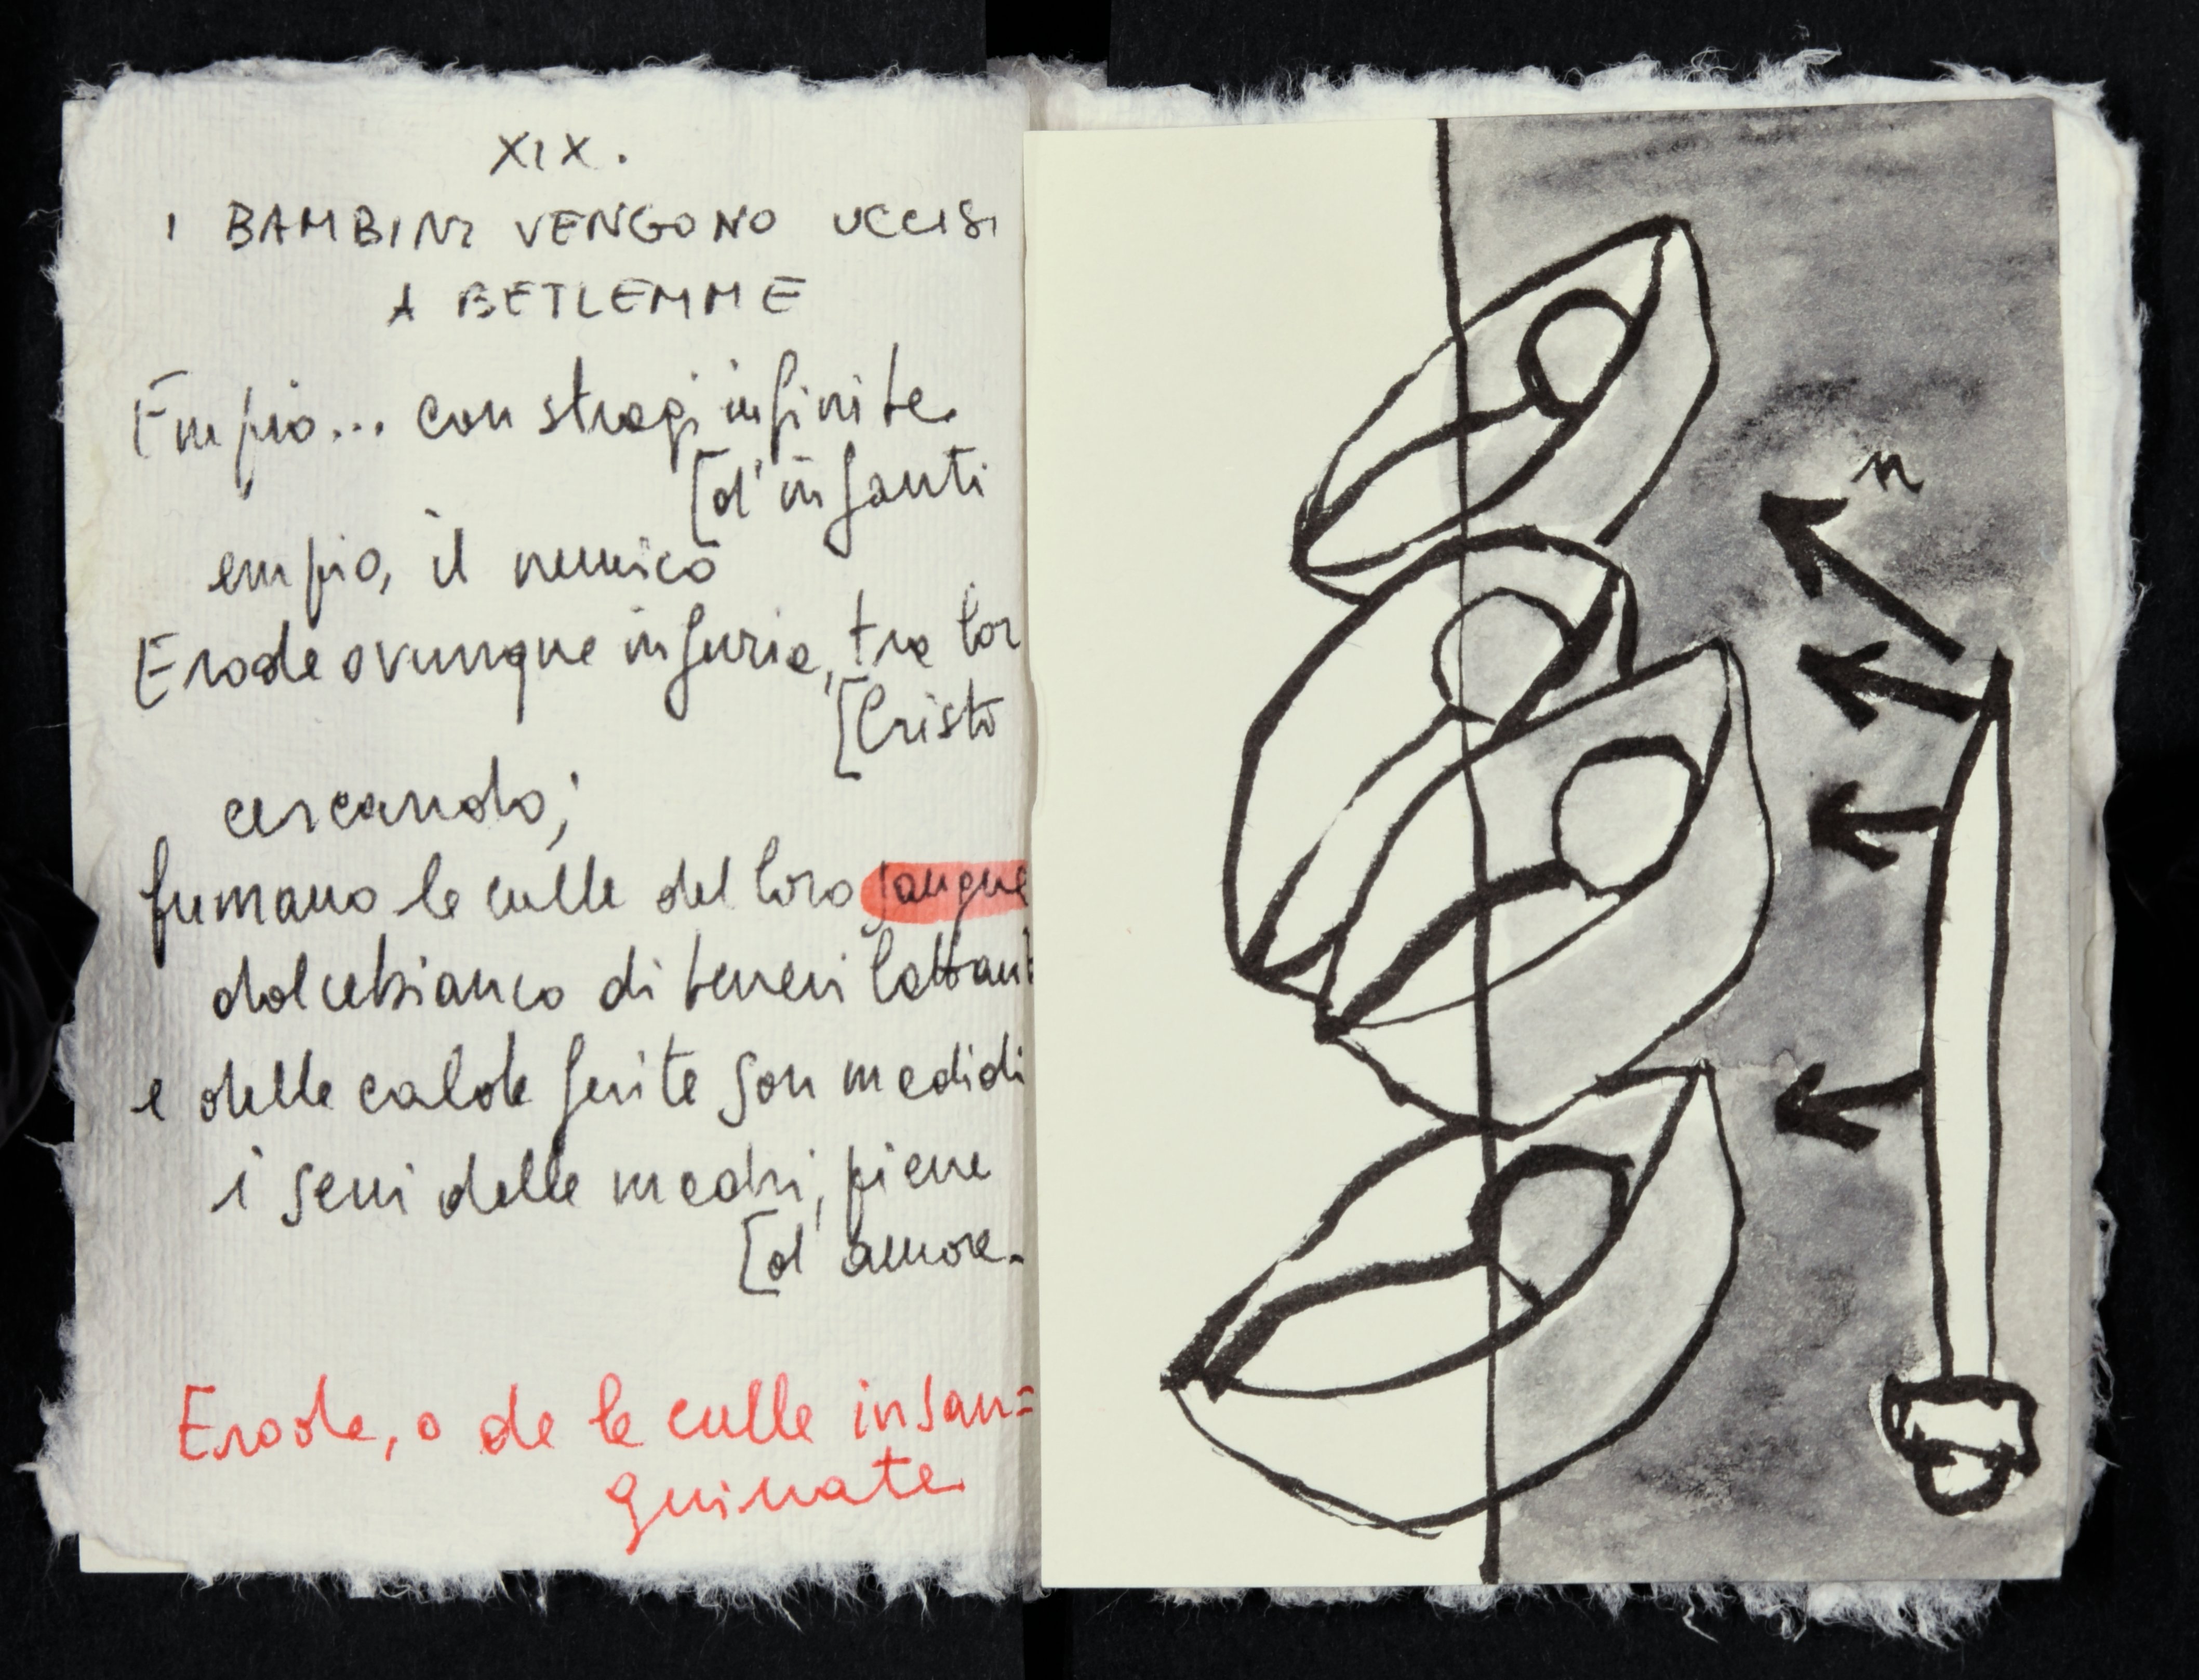 XIX.
I BAMBINI VENGONO UCCISI
A BETLEMME
Empio... con stragi infinite
[d'infanti
empio, il nemico
Erode ovunque infuria, tra lor
[Cristo
cercando;
fumano le culle del loro sangue
dolcebianco di teneri lattant
e delle calde ferite son madidi
i seni delle madri, piene
[d'amore.
Erode, o de le culle insan=
guinate
n